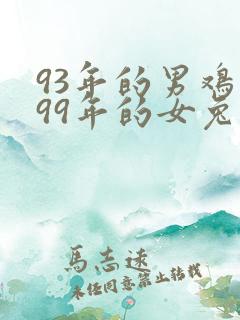 93年的男鸡
99年的女兔
馬志速
未任同意禁止转载